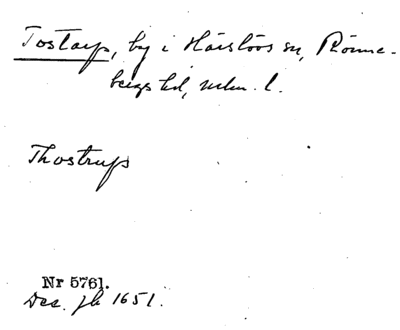 Tostarp, by i Härslövs sn, Rönne-
bergs hd, mlm. l.
Thostrup
Nr 5761.
Dec. jb 1651.